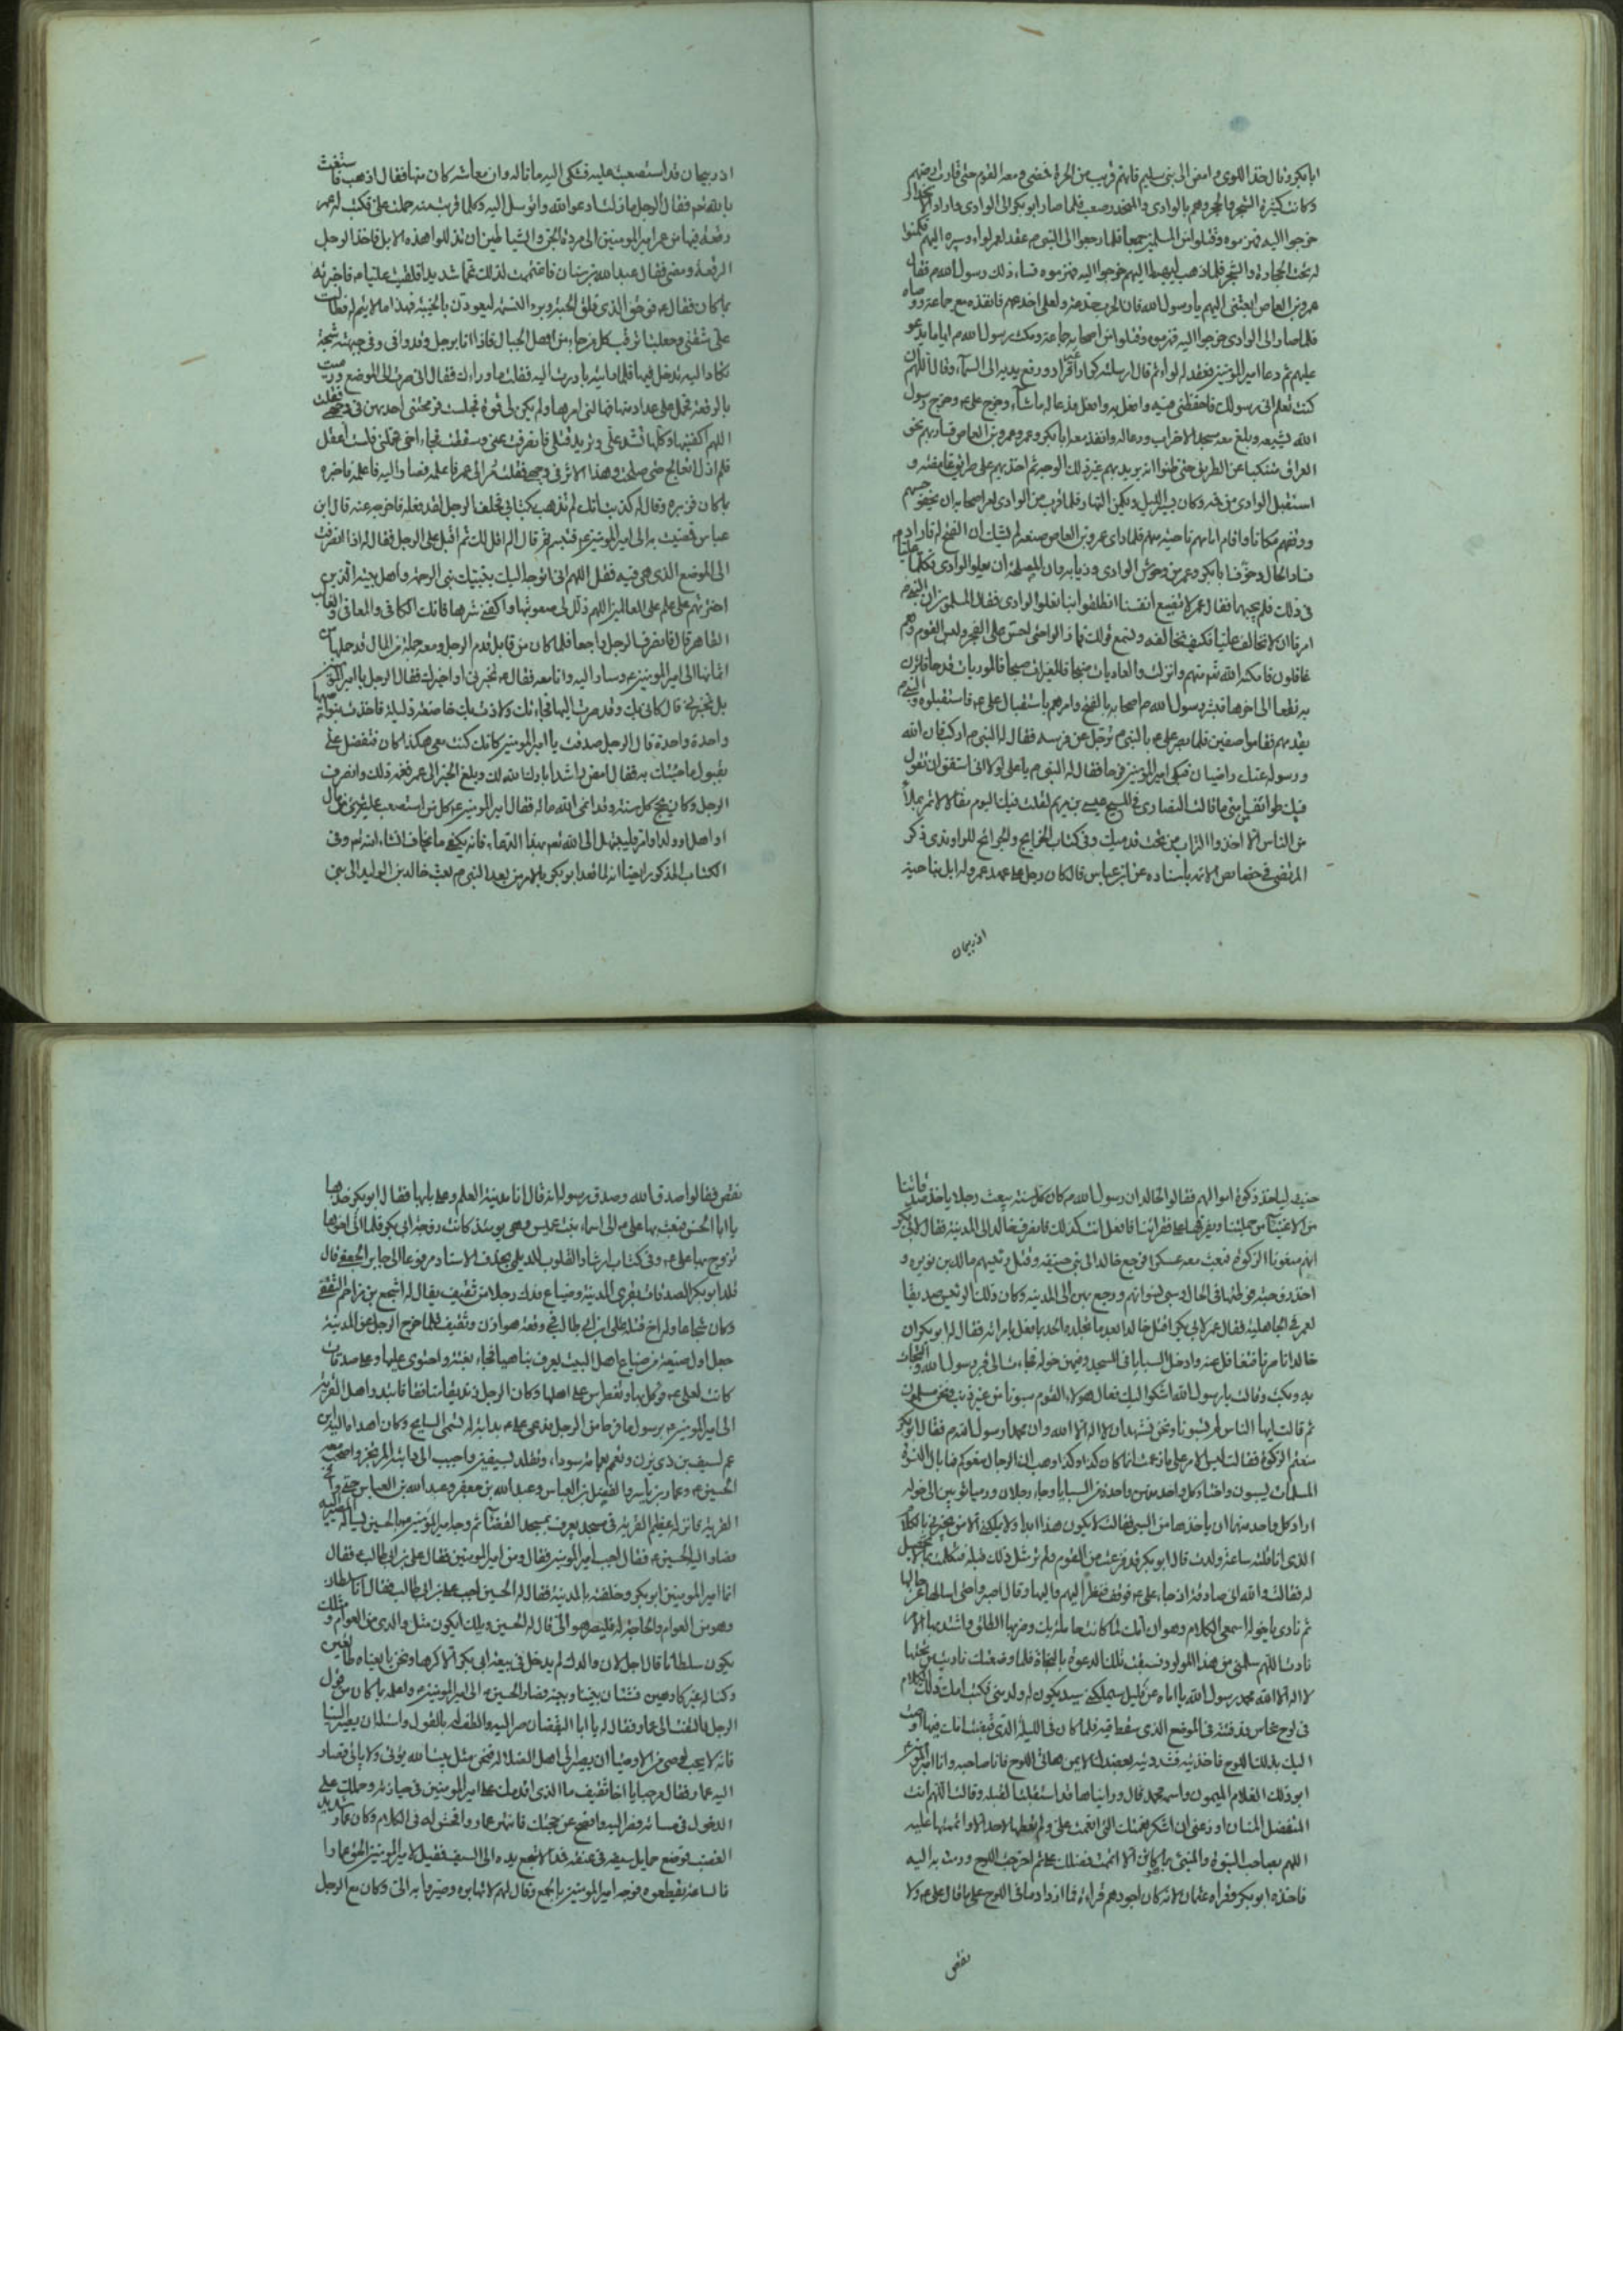 ابابكر وقال خذ اللوى وامض الى بنى سليم فانهم قريب من الحرة فمضى ومعه القوم حتى قارب ارضهم
وكانت كثيرة الشجر والحجر وهم بالوادى والمنحدر صعب فلما صار ابوبكر الى الوادى واراد الانحدار
خرجوا اليه فهزموه وقتلوا من المسلمين جمعا فلما رجعوا الى النبى م عقد لعمر لواء وسيره اليهم فكمنوا
له تحت الحجارة والشجر فلما ذهب ليهبط اليهم خرجوا اليه فهزموه فساء ذلك رسول الله م فقال
عمرو بن العاص ابعثنى اليهم يا رسول الله فان الحرب خدعة ولعلى اخدعهم فانفذه مع جماعة ووصاه
فلما صار الى الوادى خرجوا اليه فهزموه وقتلوا من اصحابه جماعة ومكث رسول الله م اياما يدعو
عليهم ثم دعا امير المؤمنين فعقد له لواء ثم قال ارسلته كرارا غير فرار ورفع يديه الى السماء وقال اللهم ان
كنت تعلم انى رسولك فاحفظنى فيه وافعل به وافعل فدعا له ما شاء وخرج على ع وخرج رسول
الله لتشييعه وبلغ معه مسجد الاحزاب ودعا له وانفذ معه ابابكر وعمر وعمرو بن العاص فسار بهم نحو
العراق متنكبا عن الطريق حتى ظنوا انه يريد بهم غير ذلك الوجه ثم اخذ بهم على طريق غامضة و
استقبل الوادى من فمه وكان يسير الليل ويكمن النهار فلما قرب من الوادى امر اصحابه ان يخفوا حسهم
ووقفهم مكانا واقام امامهم ناحية منهم فلما راى عمرو بن العاص صنعه لم يشك ان الفتح له فاراد
فساد الحال وخوف ابابكر وعمر من وحوش الوادى وذيابه وان المصلحة ان يعلوا الوادى فكلما عليا
فى ذلك فلم يجبهما فقال عمر لا نضيع انفسنا انطلقوا بنا نعلوا الوادى فقال المسلمون ان النبى م
امرنا ان لا نخالف عليا فكيف نخالفه ونسمع قولك فما زالوا حتى احس على الفجر ولبس القوم وهم
غافلون فامكنه الله تع منهم وانزلت والعاديات ضبحا فالمغيرات صبحا فالموريات قدحا فاثرن
به نقعا الى اخرها فبشر رسول الله م اصحابه بالفتح وامرهم باستقبال على ع فاستقبلوه والنبى م
يقدمهم فقاموا صفين فلما بصر على ع بالنبى م ترجل عن فرسه فقال له النبى م اركب فان الله
ورسوله عنك راضيان فبكى امير المؤمنين فرحا فقال له النبى م يا على لولا انى اشفق ان تقول
فيك طوائف امتى ما قالت النصارى فى المسيح عيسى بن مريم لقلت فيك اليوم مقالا لا تمر بملأ
من الناس الا اخذوا التراب من تحت قدميك وفى كتاب الخرايج والجرائح للراوندى ذكر
المرتضى فى خصايص الائمة باسناده عن ابن عباس قال كان رجل على عهد عمر وله ابل بناحية
اذربيجان
اذربيجان قد استصعبت عليه فشكى اليه ما ناله وان معاشه كان منها فقال اذهب فاستغث
بالله تعم فقال الرجل ما زلت ادعوا الله واتوسل اليه وكلما قربت منها حملت على فكتب له عمر
رقعة فيها من عمر امير المؤمنين الى مردة الجن والشياطين ان تذللوا هذه الابل فاخذ الرجل
الرقعة ومضى فقال عبدالله بن عباس فاغتممت لذلك غما شديدا فلقيت عليا م فاخبرته
بما كان فقال ع فو حق الذى فلق الحبة وبرء النسمة ليعودن بالخيبة فهدا ما بى وطالت
على شقتى وجعلت ارقب كل من جاء من اهل الجبال فاذا انا برجل وقد وافى وفى جبهته شجة
تكاد اليد تدخل فيها فلما رايته بادرت اليه فقلت ما وراءك فقال انى صرت الى الموضع ورميت
بالرقعة فحمل على عداد منها فهالنى امرها ولم يكن لى قوة فجلست فرمحتنى احدها فى وجهى فقلت
اللهم اكفنيها وكلها تشد على وتريد قتلى فانصرفت عنى وسقطت فجاء اخى فحملنى ولست اعقل
فلم ازل اتعالج حتى صلحت وهذا الاثر فى وجهى فقلت صر الى عمر فاعلمه فصار اليه فاعلمه فاخبره
بما كان فزبره وقال له كذبت لم تذهب بكتابى فحلف الرجل لقد فعل فاخرجه عنه قال ابن
عباس فمضيت به الى امير المؤمنين ع فتبسم ثم قال الم اقل لك ثم اقبل على الرجل فقال له اذا انصرفت
الى الموضع الذى هى فيه فقل اللهم انى اتوجه اليك بنبيك نبى الرحمة واهل بيته الذين
اخترتهم على علم على العالمين اللهم ذلل لى صعوبتها واكفنى شرها فانك الكافى والمعافى والغالب
القاهر قال فانصرف الرجل راجعا فلما كان من قابل قدم الرجل ومعه جملة من المال قد حملها من
اثمانها الى امير المؤمنين ع وسار اليه وانا معه فقال ع تخبرنى او اخبرك فقال الرجل يا امير المؤمنين
بل تخبرنى قال كانى بك وقد صرت اليها فجاءتك ولاذت بك خاضعة ذليلة فاخذت بنواصيها
واحدة واحدة قال الرجل صدقت يا امير المؤمنين كانك كنت معى هكذا كان فتفضل على
بقبول ما جئتك به فقال امض راشدا بارك الله لك وبلغ الخبر الى عمر فغمه ذلك وانصرف
الرجل وكان يحج كل سنة وقد انمى الله ماله فقال امير المؤمنين ع كل من استصعب عليه شئ من مال
او اهل او ولد او امر فليبتهل الى الله تعم بهذا الدعاء فانه يكفى ما يخاف انشاء الله تعم وفى
الكتاب المذكور ايضا انه لما قعد ابوبكر بالامر من بعد النبى م بعث خالد بن الوليد الى بنى
حنيفة لياخذ زكوة اموالهم فقالوا لخالد ان رسول الله م كان كل سنة يبعث رجلا ياخذ صدقاتنا
من الاغنياء من جملتنا ويفرقها على فقرائنا فافعل انت كذلك فانصرف خالد الى المدينة فقال لابى بكر
انهم منعونا الزكوة فبعث معه عسكرا فرجع خالد الى بنى حنيفة وقتل رئيسهم مالك بن نويره و
اخذ زوجته فوطئها فى الحال وسبى نسوانهم ورجع بهن الى المدينة وكان ذلك الرئيس صديقا
لعمر فى الجاهلية فقال عمر لابى بكر اقتل خالدا بعد ما تجلده الحد بما فعل بامراته فقال له ابوبكر ان
خالدا ناصرنا تغافل عنه وادخل السبايا فى المسجد وفيهن خوله فجاءت الى قبر رسول الله والتجات
به وبكت وقالت يا رسول الله اشكوا اليك فعال هؤلاء القوم سبونا من غير ذنب ونحن مسلمون
ثم قالت ايها الناس لم سبيتمونا ونحن نشهد ان لا اله الا الله وان محمدا رسول الله م فقال ابوبكر
منعتم الزكوة فقالت ليس الامر على ما زعمت انما كان كذا وكذا وهب ان الرجال منعوكم فما بال النسوة
المسلمات يسبون واختار كل واحد منهن واحدة من السبايا وجاء رجلان ورميا ثوبين الى خوله
اراد كل واحد منهما ان ياخذها من السبى فقالت لا يكون هذا ابدا ولا يملكنى الا من يخبرنى بالكلام
الذى انا قلته ساعة ولدت قال ابوبكر قد فزعت من القوم ولم تر مثل ذلك قبله فتكلمت بما لا تحصيل
له فقالت والله انى صادقة اذ جاء على ع فوقف فنظر اليهم واليها وقال اصبروا حتى اسالها عن حالها
ثم نادى يا خولة اسمعى الكلام وهو ان امك لما كانت حاملة بك وضربها الطلق واشتد بها الامر
نادت اللهم سلمنى من هذا المولود فسبقت تلك الدعوة بالنجاة فلما وضعتك ناديت من تحتها
لا اله الا الله محمد رسول الله يا اماه عن قليل سيملكنى سيد يكون له ولد منى فكتبت امك ذلك الكلام
فى لوح نحاس فدفنته فى الموضع الذى سقطت فيه فلما كان فى الليلة التى قبضت امك فيها اوصت
اليك بذلك اللوح فاخذتيه فشددتيه بعضدك الايمن هاتى اللوح فانا صاحبه وانا امير المؤمنين
ابو ذلك الغلام الميمون واسمه محمد قال ورايناها قد استقبلت القبلة وقالت اللهم انت
المتفضل المنان اوزعنى ان اشكر نعمتك التى انعمت على ولم تعطها لاحد الا واتممتها عليه
اللهم بصاحب التربة والمنبئ بما يكون الا اتممت فضلك على ثم اخرجت اللوح ورمت به اليه
فاخذه ابوبكر وقراه عثمان لانه كان اجودهم قراءة فما ازداد ما فى اللوح على ما قال على ع ولا
نقص
نقص فقالوا صدق الله وصدق رسوله اذ قال انا مدينة العلم وعلى بابها فقال ابوبكر خذها
يا ابا الحسن فبعث بها على م الى اسماء بنت عميس وهى يومئذ كانت زوجة ابى بكر فلما اتى اخوها
تزوج بها على ع وفى كتاب ارشاد القلوب للديلمى بحذف الاسناد مرفوعا الى جابر الجعفى قال
قلد ابوبكر الصدقات بقرى المدينة وضياع فدك رجلا من ثقيف يقال له اشجع بن مزاحم الثقفى
وكان شجاعا وله اخ قتله على ابن ابى طالب فى وقعة هوازن وثقيف فلما خرج الرجل عن المدينة
جعل اول ضيعة من ضياع اهل البيت يعرف ببانقيا فجاء بغتة واحتوى عليها وعلى صدقات
كانت لعلى ع وتوكل بها وتغطرس على اهلها وكان الرجل زنديقا منافقا فابتدر اهل القرية
الى امير المؤمنين ع برسول ما فرط من الرجل فدعى على ع بدابة له تسمى السابح وكان اهداه اليه ابن
عم لسيف بن ذى يزن وتعمم بعمامة سوداء وتقلد بسيفين واجنب الى دابته المرتجز واصحب معه
الحسين ع وعمار بن ياسر والفضل بن العباس وعبدالله بن جعفر وعبدالله بن العباس حتى وافى
القرية فانزله عظيم القرية فى مسجد يعرف بمسجد القضاء ثم وجه امير المؤمنين ع بالحسين يساله المصير اليه
فصار اليه الحسين ع فقال اجب امير المؤمنين فقال ومن امير المؤمنين فقال على بن ابى طالب ع فقال
انما امير المؤمنين ابوبكر وخلفته بالمدينة فقال له الحسين اجب على بن ابى طالب فقال انا سلطان
وهو من العوام والحاجة له فليصر هو الى قال له الحسين ويلك ايكون مثل والدى من العوام ومثلك
يكون سلطانا قال اجل لان والدك لم يدخل فى بيعة ابى بكر الا كرها ونحن بايعناه طائعين
وكنا له غير كارهين فشتان بيننا وبينه فصار الحسين ع الى امير المؤمنين ع واعلمه بما كان من قول
الرجل فالتفت الى عمار وقال له يا ابا اليقظان صر اليه والطف له بالقول واسئله ان يصير الينا
فانه لا يجب لوصى من الاوصياء ان يصير الى اهل الضلالة فنحن مثل بيت الله يؤتى ولا ياتى فصار
اليه عمار وقال مرحبا يا اخا ثقيف ما الذى اقدمك على امير المؤمنين فى حيازته وحملك على
الدخول فى مساءته فصر اليه وافصح عن حجتك فانتهر عمار وافحش له فى الكلام وكان عمار شديد
الغضب فوضع حمايل سيفه فى عنقه فمد الاشجع يده الى السيف فقيل لامير المؤمنين الحق عمارا
فالساعة يقطعوه فوجه امير المؤمنين ع بالجمع وقال لهم لا تهابوه وصيروا به الى وكان مع الرجل